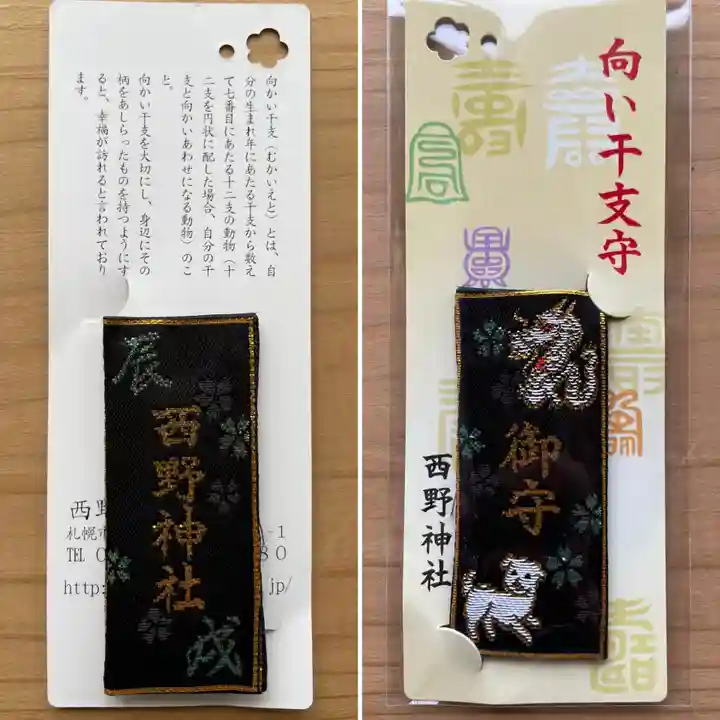 向かい干支（むかいえと）とは、自
分の生まれ年にあたる干支から数え
て七番目にあたる十二支の動物（十
二支を円状に配した場合、自分の干
支と向かいあわせになる動物）のこ
と。
向かい干支を大切にし、身辺にその
柄をあしらったものを持つようにす
ると、幸福が訪れると言われており
ます。
辰
西野神社
戌
西野
札幌市
-1
TEL
80
http:
jp/
向い干支守
御守
西野神社